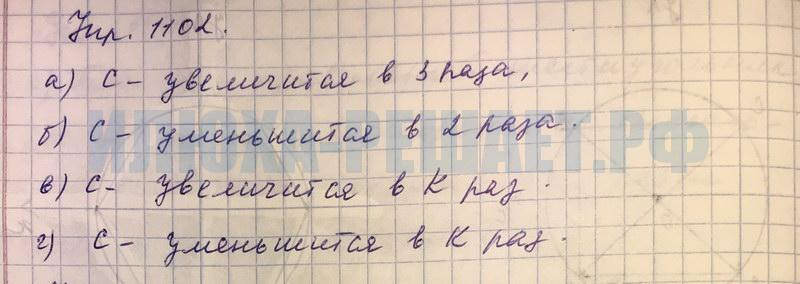 Упр. 1102.
а) С - увеличится в 3 раза,
б) С - уменьшится в 2 раза.
ИЛЮХА-РЕШАЕТ.РФ
в) С - увеличится в К раз.
г) С - уменьшится в К раз.